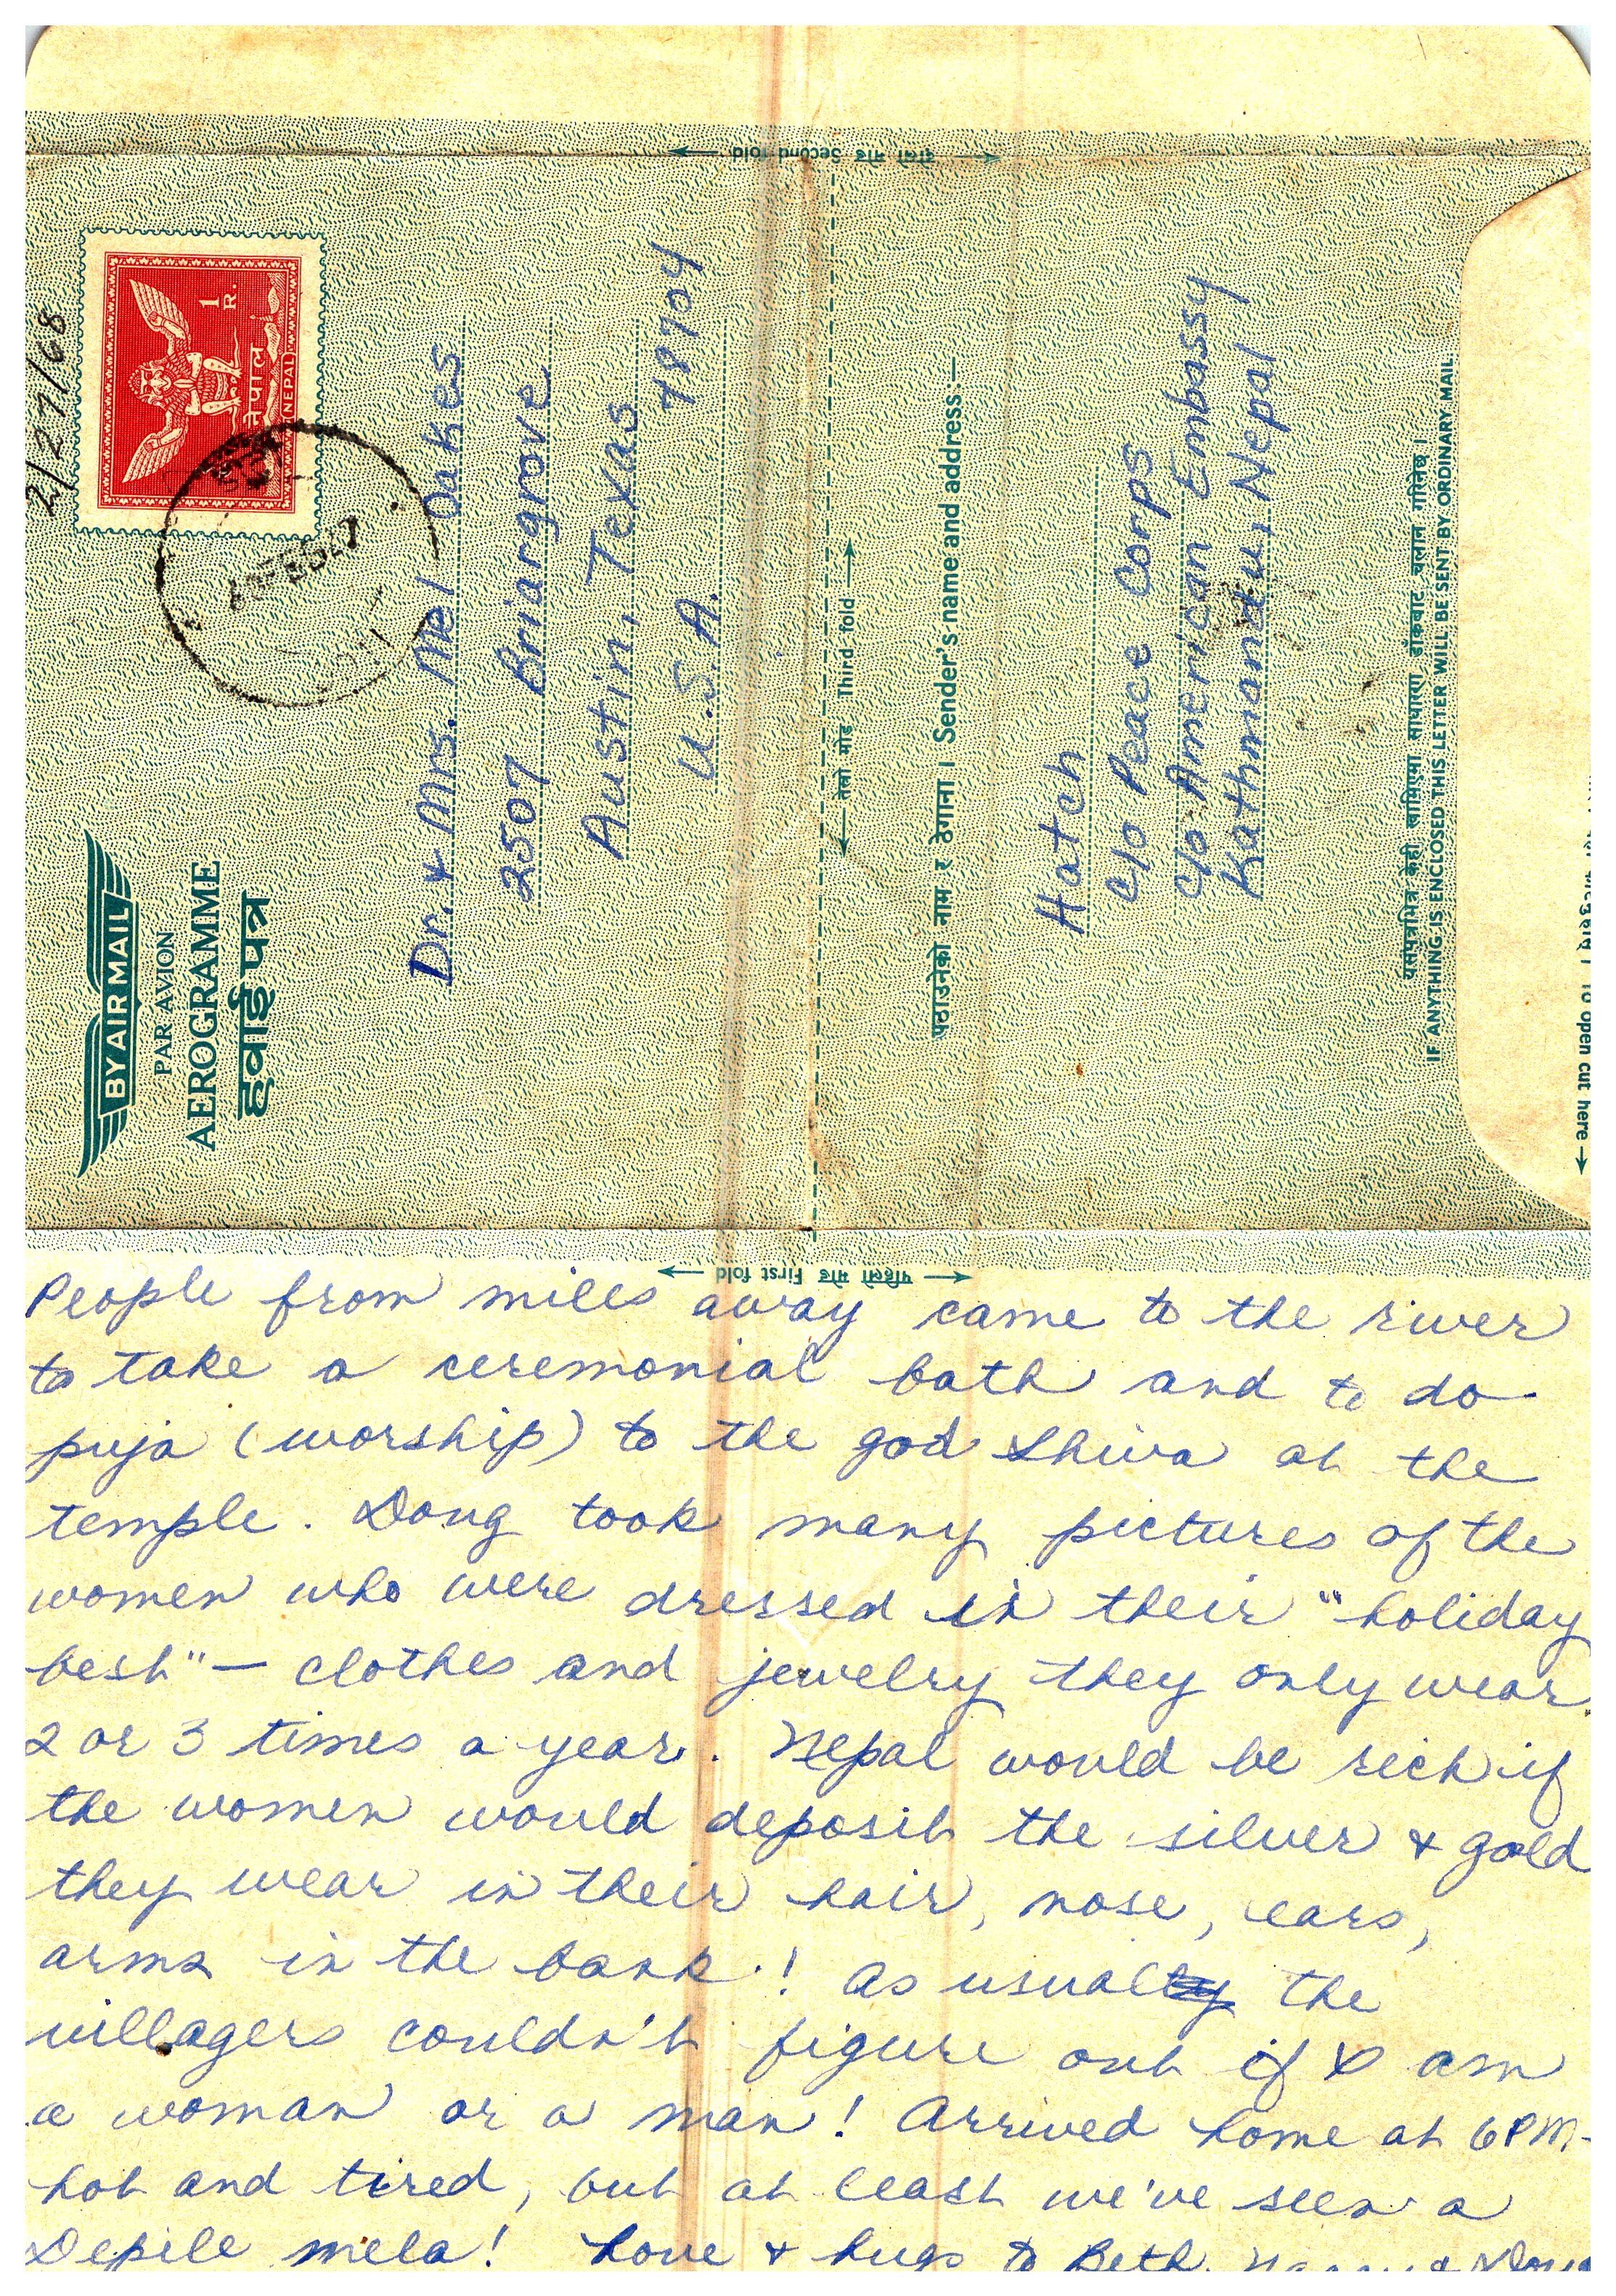 2/27/68
नेपाल
NEPAL
1 R.
BY AIR MAIL
PAR AVION
AEROGRAMME
हवाई पत्र
Dr. & Mrs. Mel Oakes
2507 Briargrove
Austin, Texas
U.S.A. 78704
दोस्रो मोड Second fold
तेस्रो मोड Third fold
पठाउनेको नाम र ठेगाना । Sender's name and address:—
Hatch
c/o Peace Corps
c/o American Embassy
Kathmandu, Nepal
IF ANYTHING IS ENCLOSED THIS LETTER WILL BE SENT BY ORDINARY MAIL
To open cut here
पहिलो मोड First fold
People from miles away came to the river
to take a ceremonial bath and to do
puja (worship) to the god Shiva at the
temple. Doug took many pictures of the
women who were dressed in their "holiday
best" — clothes and jewelry they only wear
2 or 3 times a year. Nepal would be rich if
the women would deposit the silver & gold
they wear in their hair, nose, ears,
arms in the bank! As usual the
villagers couldn't figure out if I am
a woman or a man! Arrived home at 6PM-
hot and tired, but at least we've seen a
mela! Love & hugs to Beth. & Doug